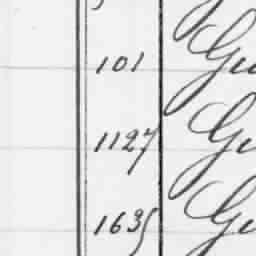 101 Gu
1127 Gu
1635 Gu